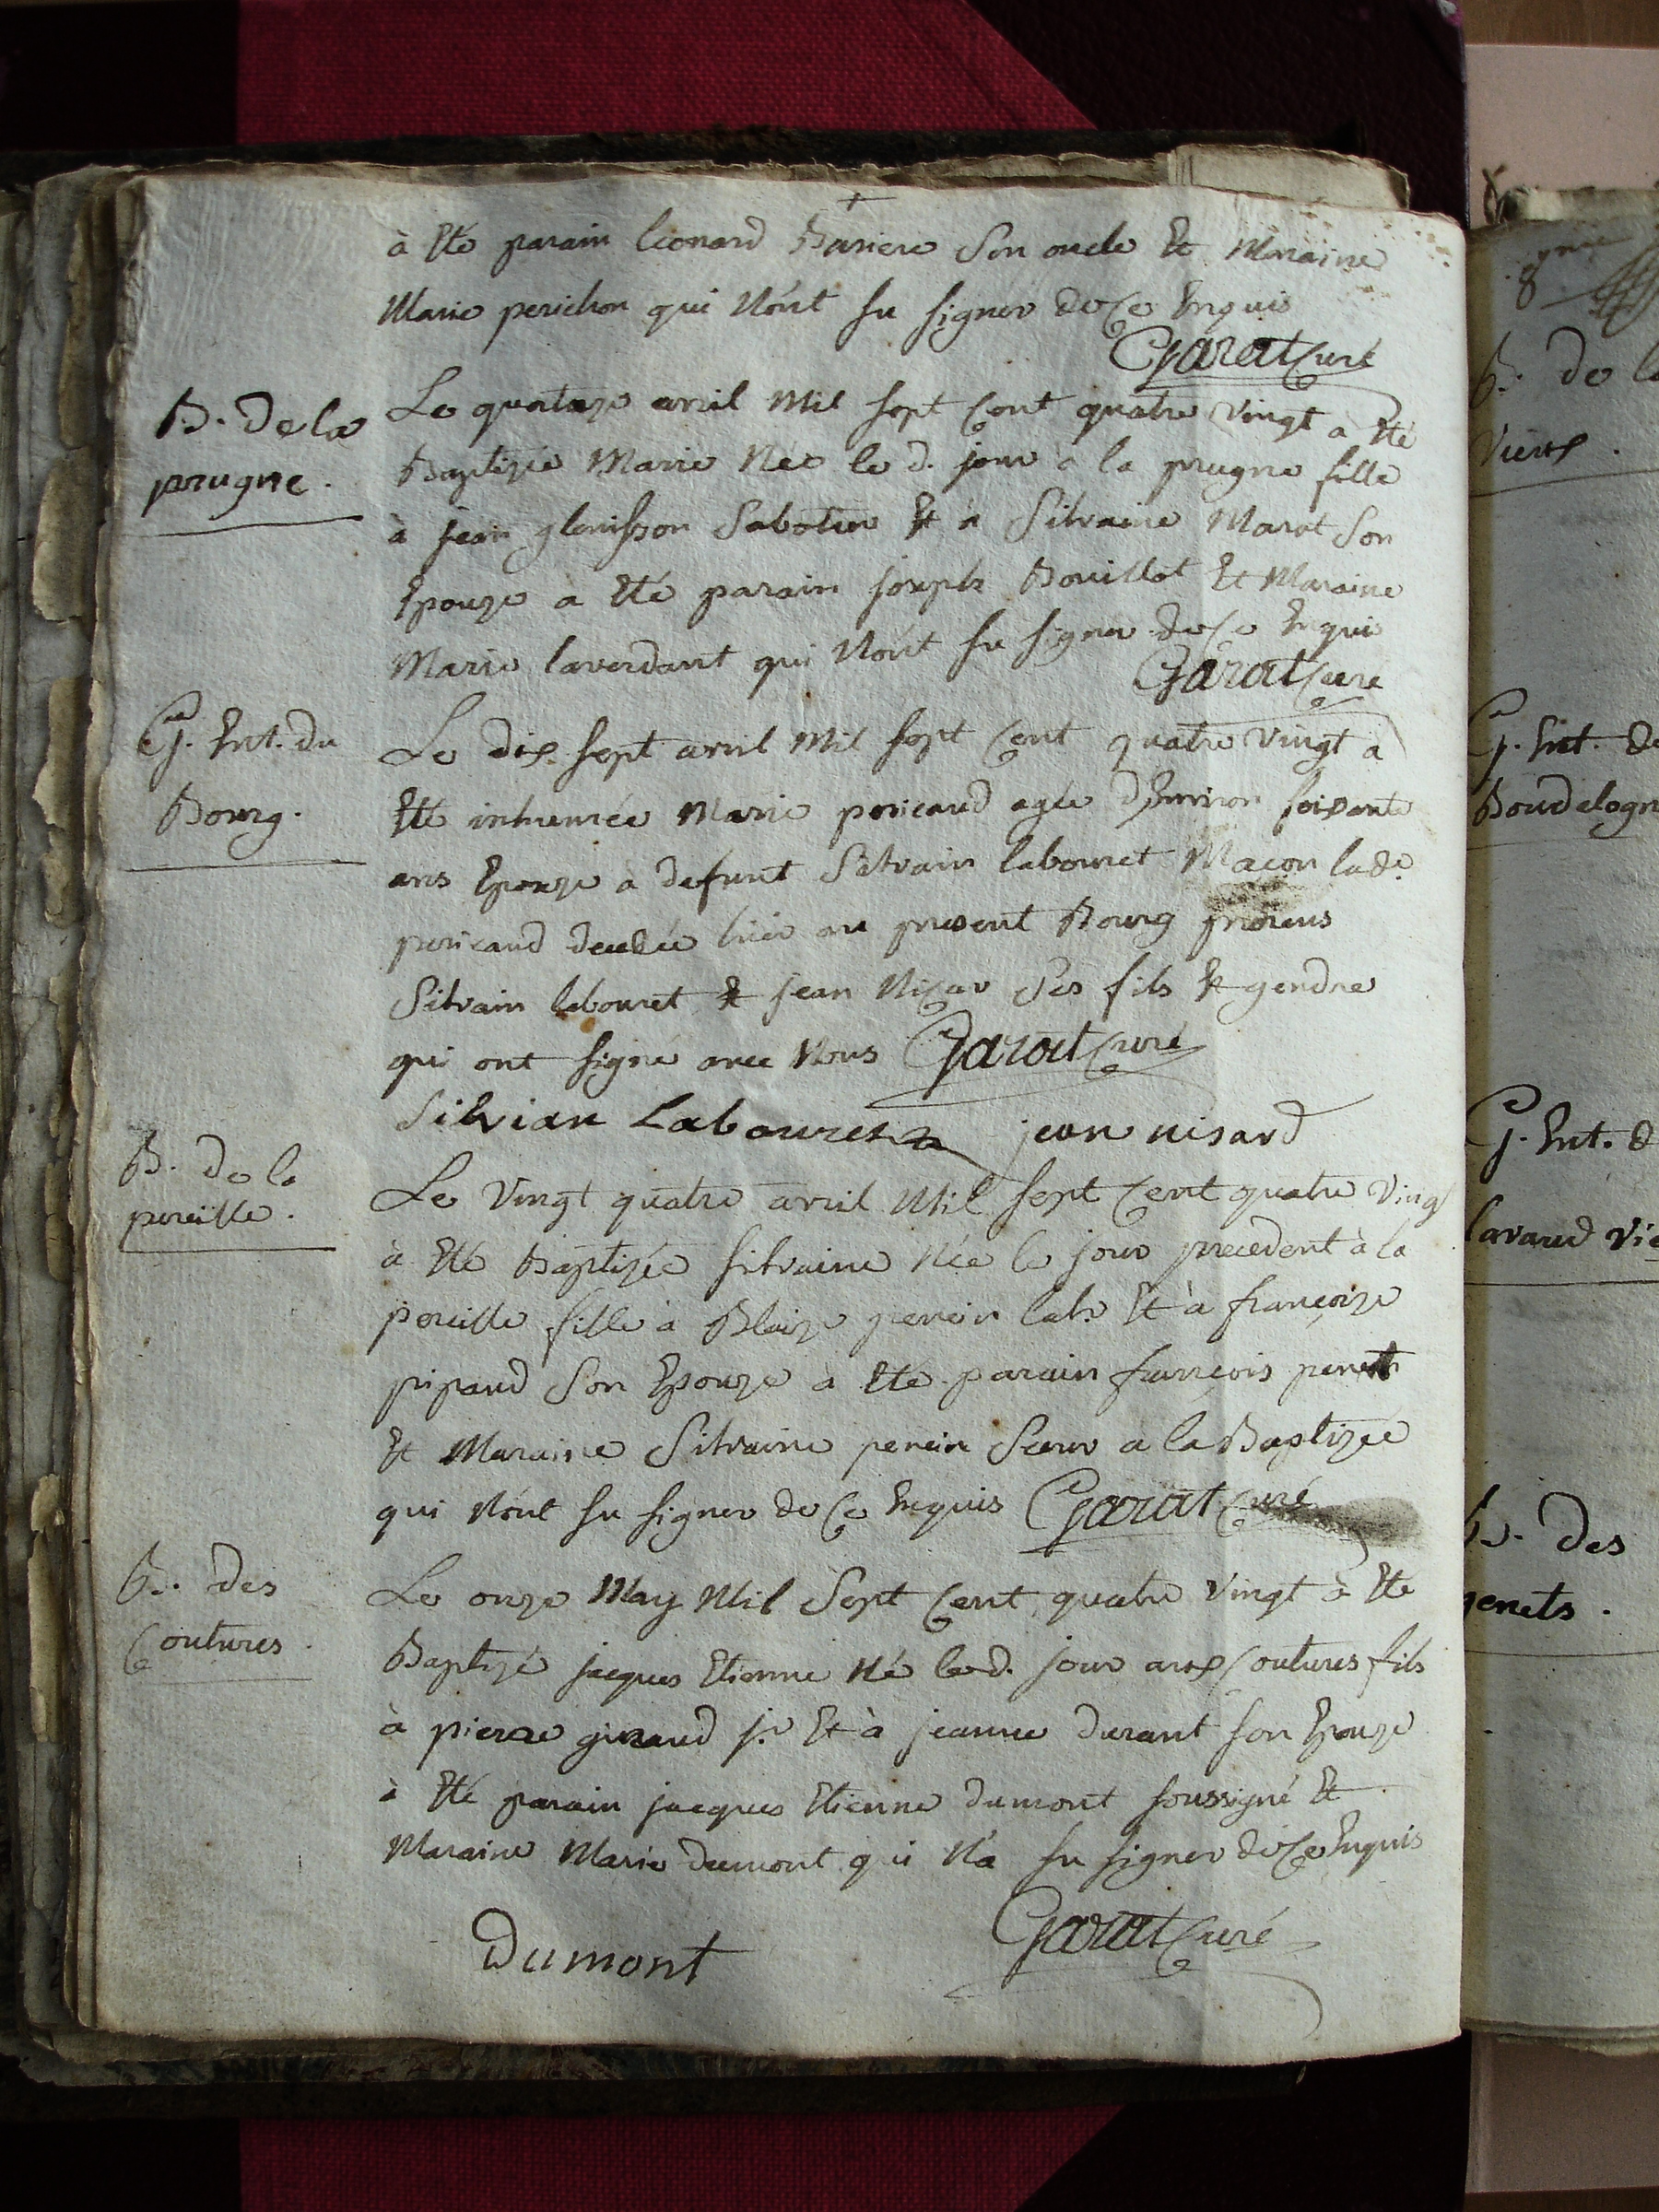 à Eté parain leonard Bariere Son oncle Et Maraine
Marie perichon qui N'ont su signer de Ce Enquis
Garat Curé
B. De la
prugne.
Le quatorze avril Mil sept Cent quatre Vingt a Eté
Baptizée Marie Née le d. jour à la prugne fille
à jean glenisson Sabotier Et à Silvaine Marat Son
Epouze a Eté parain joseph Bouillot Et Maraine
Marie laverdant qui N'ont su signer de Ce Enqui
Garat Curé
G. Ent. du
Bourg.
Le dix sept avril Mil sept Cent quatre Vingt a
Eté inhumée Marie pericaud agée d'Environ soixante
ans Epouze à defunt Silvain labouret Maçon lade.
pericaud decedée hier au present Bourg presens
Silvain labouret Et jean Nisar Ses fils Et gendre
qui ont signé avec Nous Garat Curé
Silvian Labouret jean nisard
B. de la
pereille.
Le Vingt quatre avril Mil sept Cent quatre Vingt
à Eté Baptizée silvaine Née le jour precedent à la
pereille fille à Blaize perein labr. Et à françoize
pipaud Son Epouze à Eté parain françois
Et Maraine Silvaine perein Soeur a la Baptizée
qui N'ont su signer de Ce Enquis Garat Curé
B. des
Coutures.
Le onze May Mil Sept Cent quatre Vingt à Eté
Baptizé jacques Etienne Né le d. jour aux Coutures fils
à pierre giraud jr. Et à jeanne durant son Epouze
à Eté parain jacques Etienne dumont soussigné Et
Maraine Marie dumont qui N'a su signer de Ce Enquis
Dumont
Garat Curé
B. de la
Vieux.
G. Ent. de
Boudelogn
G. Ent. d
lavaud Vie
B. des
genets.